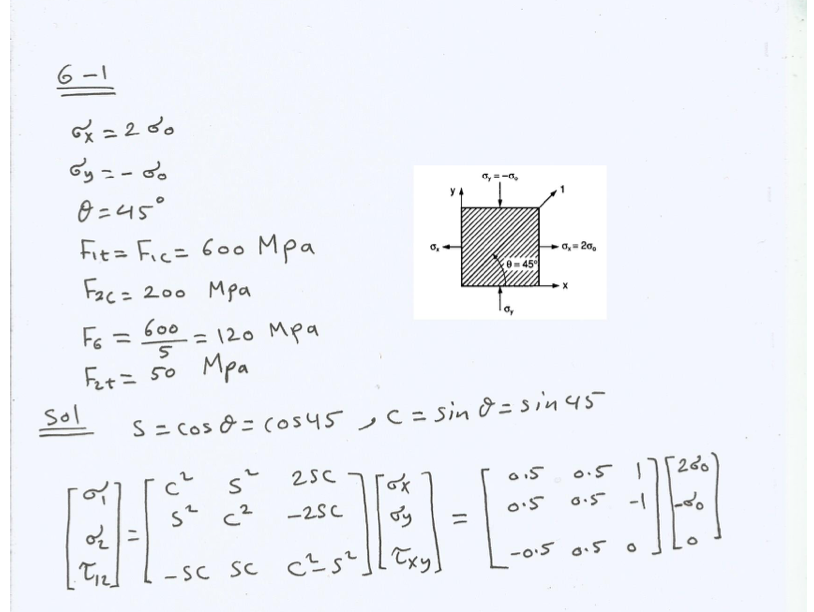 6-1
σx = 2 σo
σy = - σo
θ = 45°
F1t = F1c = 600 Mpa
F2c = 200 Mpa
F6 = 600/5 = 120 Mpa
F2t = 50 Mpa
σy = -σo
y
1
σx
σx = 2σo
θ = 45°
x
σy
Sol S = cos θ = cos45 , C = sin θ = sin 45
[σ1 σ2 τ12] = [C² S² 2SC S² C² -2SC -SC SC C²-S²] [σx σy τxy] = [0.5 0.5 1 0.5 0.5 -1 -0.5 0.5 0] [2σo -σo 0]